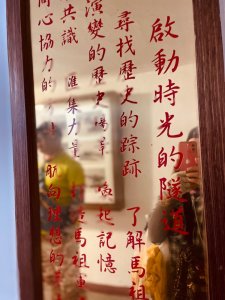 啟動時光的隧道
尋找歷史的踪跡 了解馬祖
演變的歷史 喚起記憶
共識 匯集力量 打造馬祖
同心協力的 航向理想的